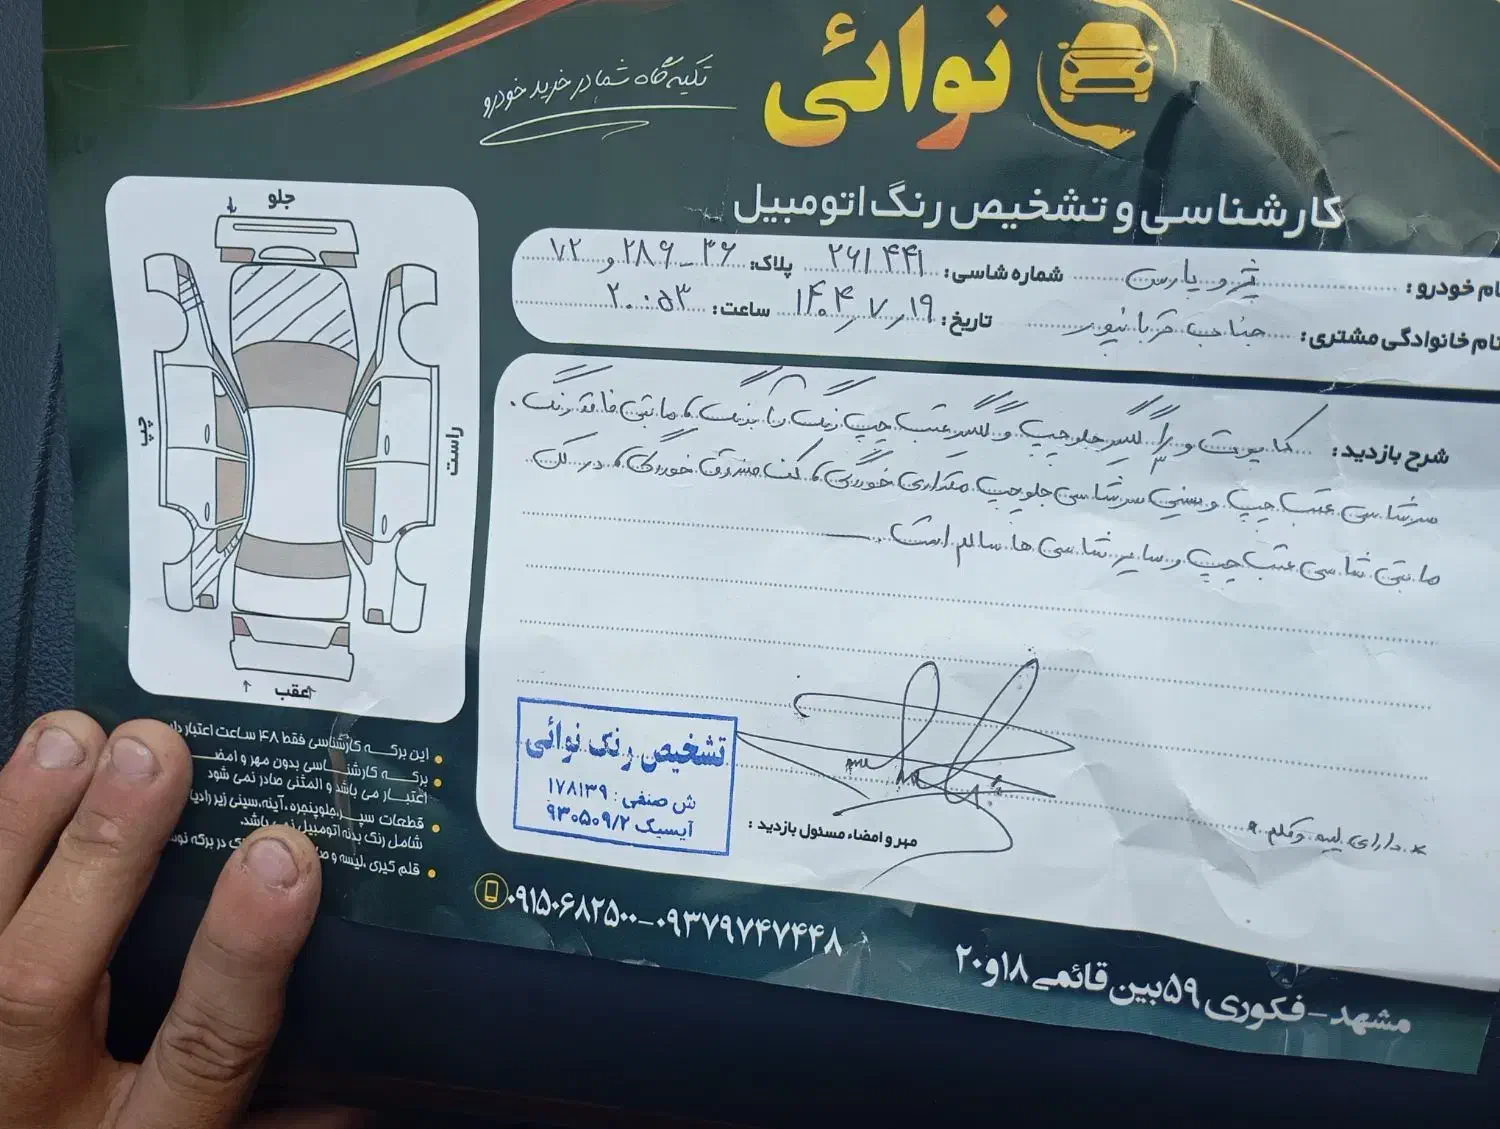 نوائی
تکیه گاه شما در خرید خودرو
کارشناسی و تشخیص رنگ اتومبیل
نام خودرو: پژو پارس شماره شاسی: ۲۶۱۴۴۱ پلاک: ۳۶-۲۸۶ و ۷۲
نام خانوادگی مشتری: جناب قربانپور تاریخ: ۱۴۰۴/۷/۱۹ ساعت: ۲۰:۵۳
شرح بازدید: کاپوت و گلگیر جلو چپ و گلگیر عقب چپ رنگ مابقی فاقد رنگ.
سرشاسی عقب چپ و سینی سرشاسی جلو چپ مقداری خوردگی، کف صندوق خوردگی، در کل
مابقی شاسی عقب چپ و سایر شاسی ها سالم است.
* دارای لیسه و قلم.
جلو
چپ
راست
عقب
تشخیص رنگ نوائی
ش صنفی: ۱۷۸۱۳۹
آیسیک ۹۳۰۵۰۹/۲
مهر و امضاء مسئول بازدید:
این برگه کارشناسی فقط ۴۸ ساعت اعتبار دارد
برگه کارشناسی بدون مهر و امضاء
اعتبار می باشد و المثنی صادر نمی شود
قطعات سپر، جلوپنجره، آینه، سینی زیر رادیا
شامل رنگ بدنه اتومبیل نمی باشد.
قلم گیری، لیسه و در برگه
۰۹۱۵۰۶۸۲۵۰۰-۰۹۳۷۹۷۴۷۴۴۸
مشهد-فکوری ۵۹ بین قائمی ۱۸ و ۲۰